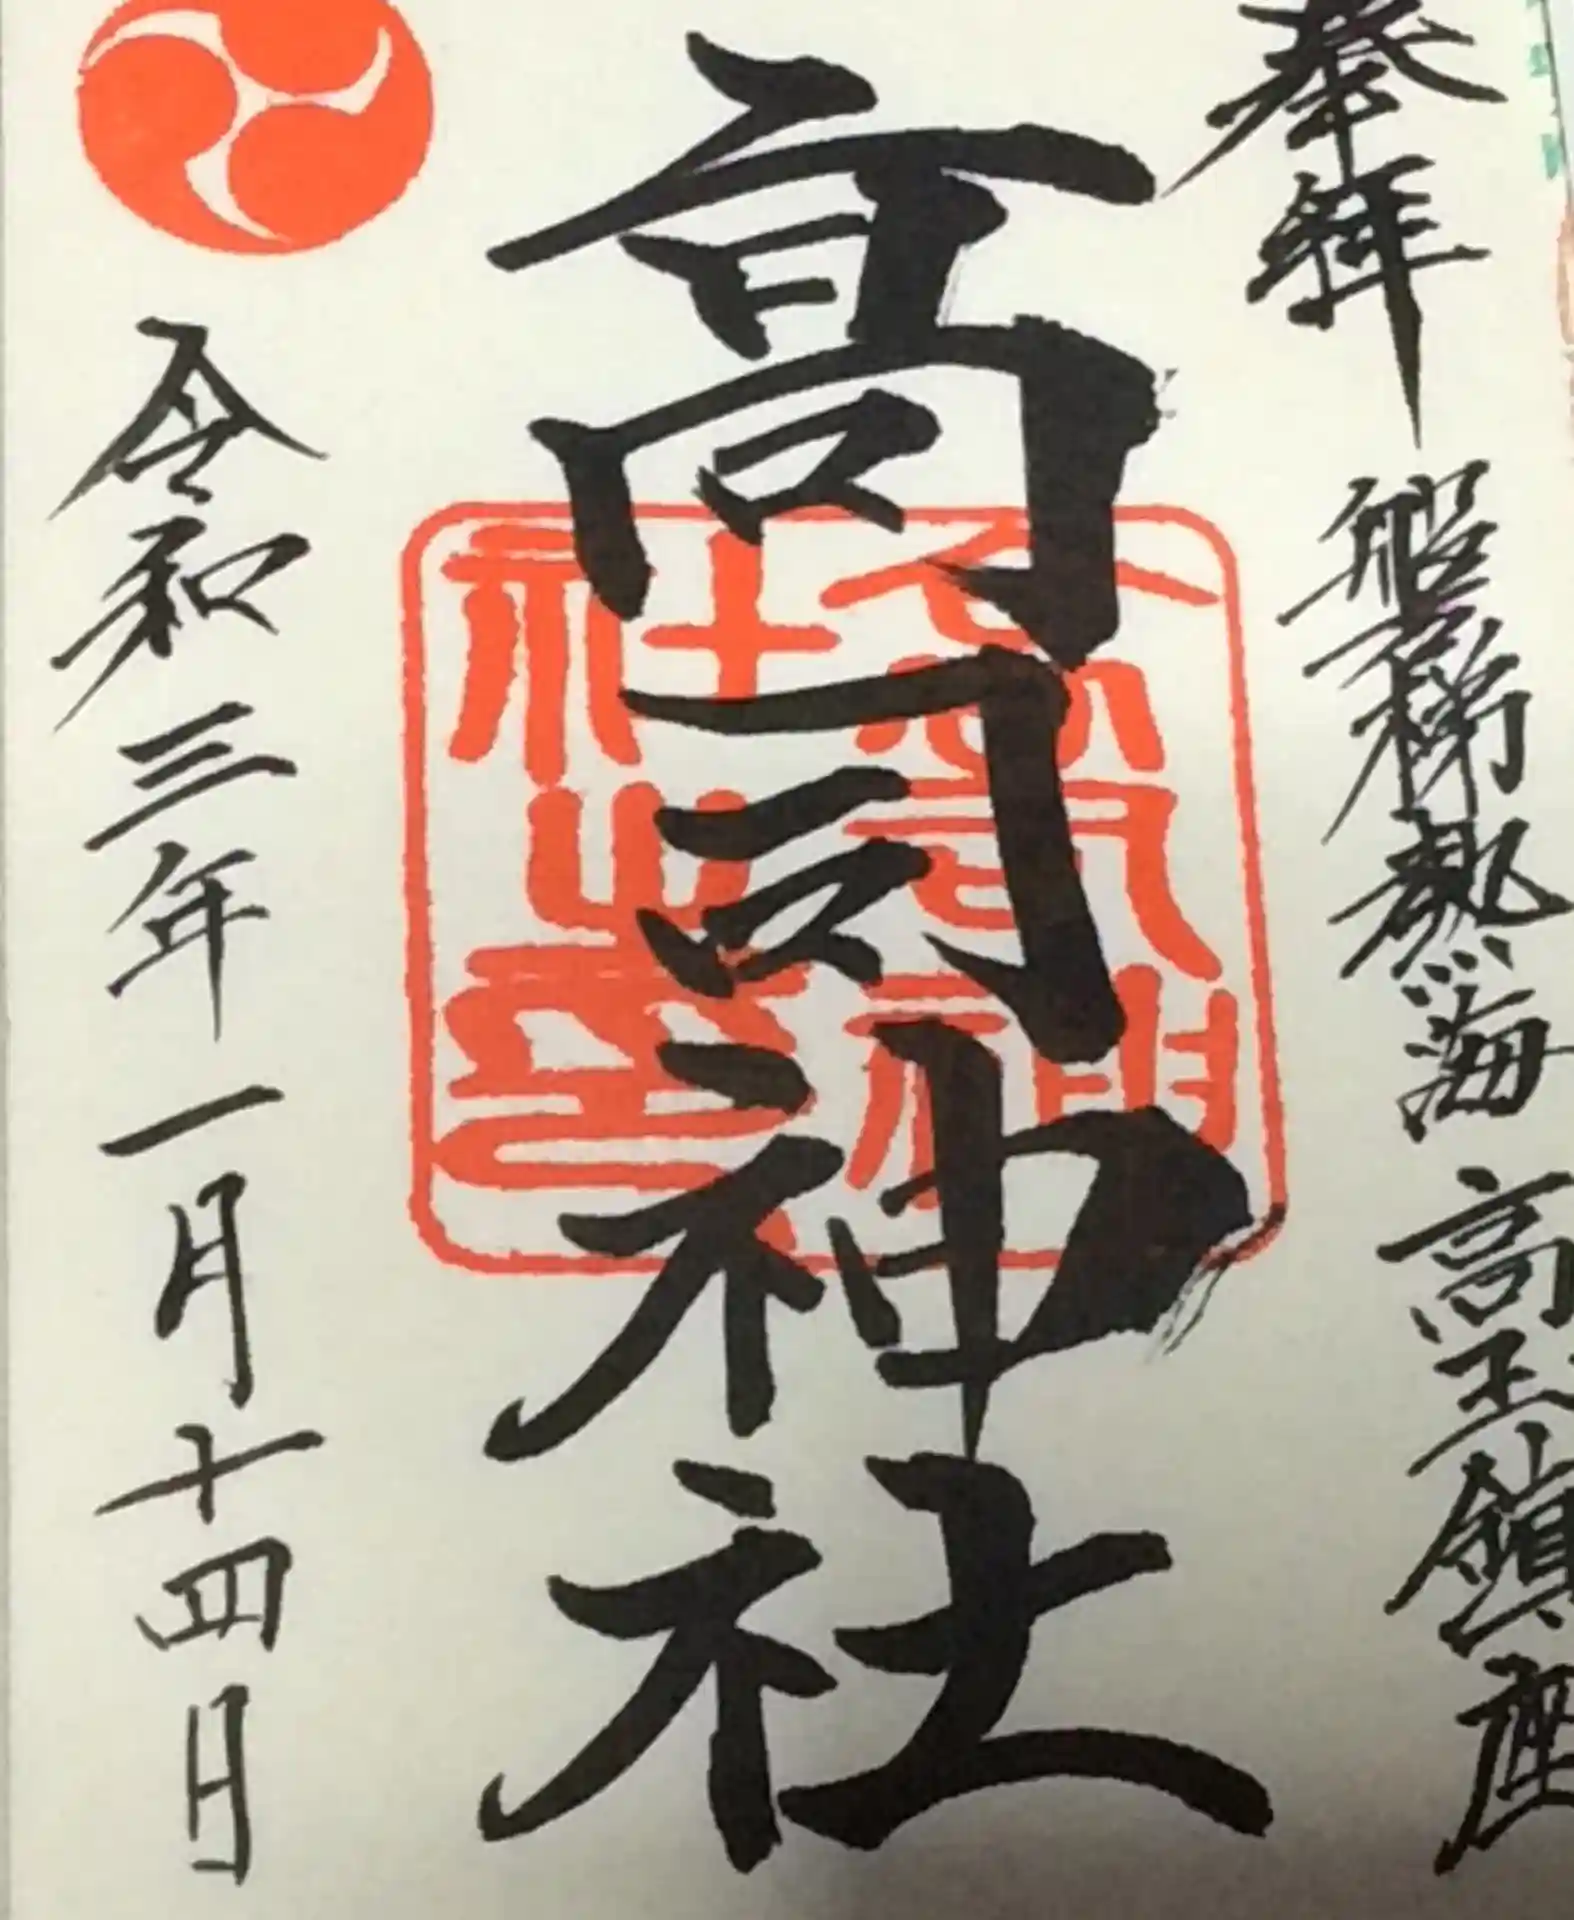 奉拝 磐梯熱海 高玉鎮座
高司神社
高司神社之印
令和三年一月十四日